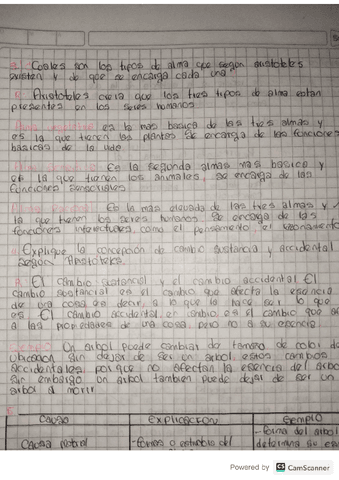 Cuales son los tipos de alma que segun aristoteles
existen y de que se encarga cada una
Aristoteles creia que los tres tipos de alma estan
presentes en los seres humanos
es la mas basica de las tres almas y
es la que tienen las plantas se encarga de las funciones
basicas de la vida
Es la segunda almas mas basica y
es la que tienen los animales, se encarga de las
funciones sensoriales
Es la mas elevada de las tres almas y
la que tienen los seres humanos se encarga de las
funciones intelectuales, como el pensamiento, el razonamiento
Explique la concepcion de cambio sustancia y accidental
segun Aristoteles
R. El cambio sustancial y el cambio accidental El
cambio sustancial es el cambio que afecta la esencia
de una cosa es decir, a lo que la hace ser lo que
es El cambio accidental, en cambio es el cambio que
a las propiedades de una cosa, pero no a su esencia.
Ejemplo Un arbol puede cambiar de tamaño de color de
ubicacion sin dejar de ser un arbol, estos cambios
accidentales porque no afectan la esencia del arbol
sin embargo un arbol tambien puede dejar de ser un
arbol al morir
Causa Explicacion Ejemplo
-forma del arbol
Causa -formas o del determina su
Powered by CS CamScanner